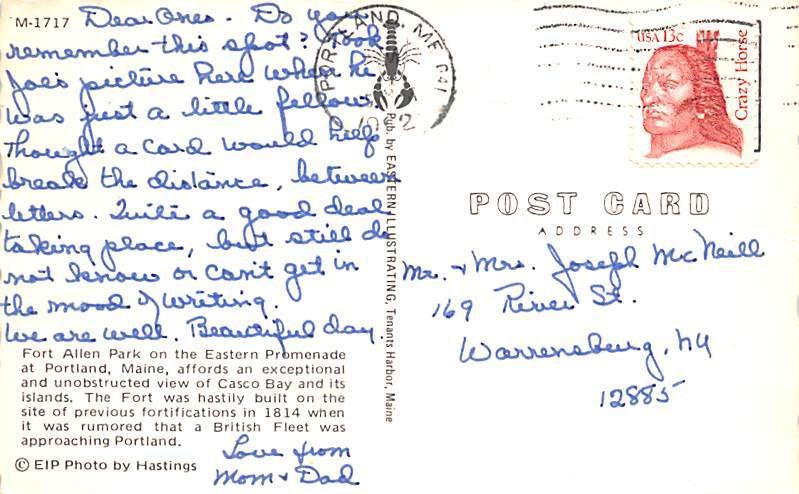 M-1717
Dear Ones. Do you
remember this spot? Took
Joe's picture here when he
was just a little fellow.
Thought a card would help
break the distance, between
letters. Quite a good deal
taking place, but still do
not know or can't get in
the mood of writing.
We are well. Beautiful day.
Fort Allen Park on the Eastern Promenade
at Portland, Maine, affords an exceptional
and unobstructed view of Casco Bay and its
islands. The Fort was hastily built on the
site of previous fortifications in 1814 when
it was rumored that a British Fleet was
approaching Portland.
Love from
Mom & Dad
© EIP Photo by Hastings
Pub. by EASTERN ILLUSTRATING, Tenants Harbor, Maine
PORTLAND, ME 041
USA 13c
Crazy Horse
POST CARD
ADDRESS
Mr. & Mrs. Joseph McNeill
169 River St.
Warrensburg, NY
12885